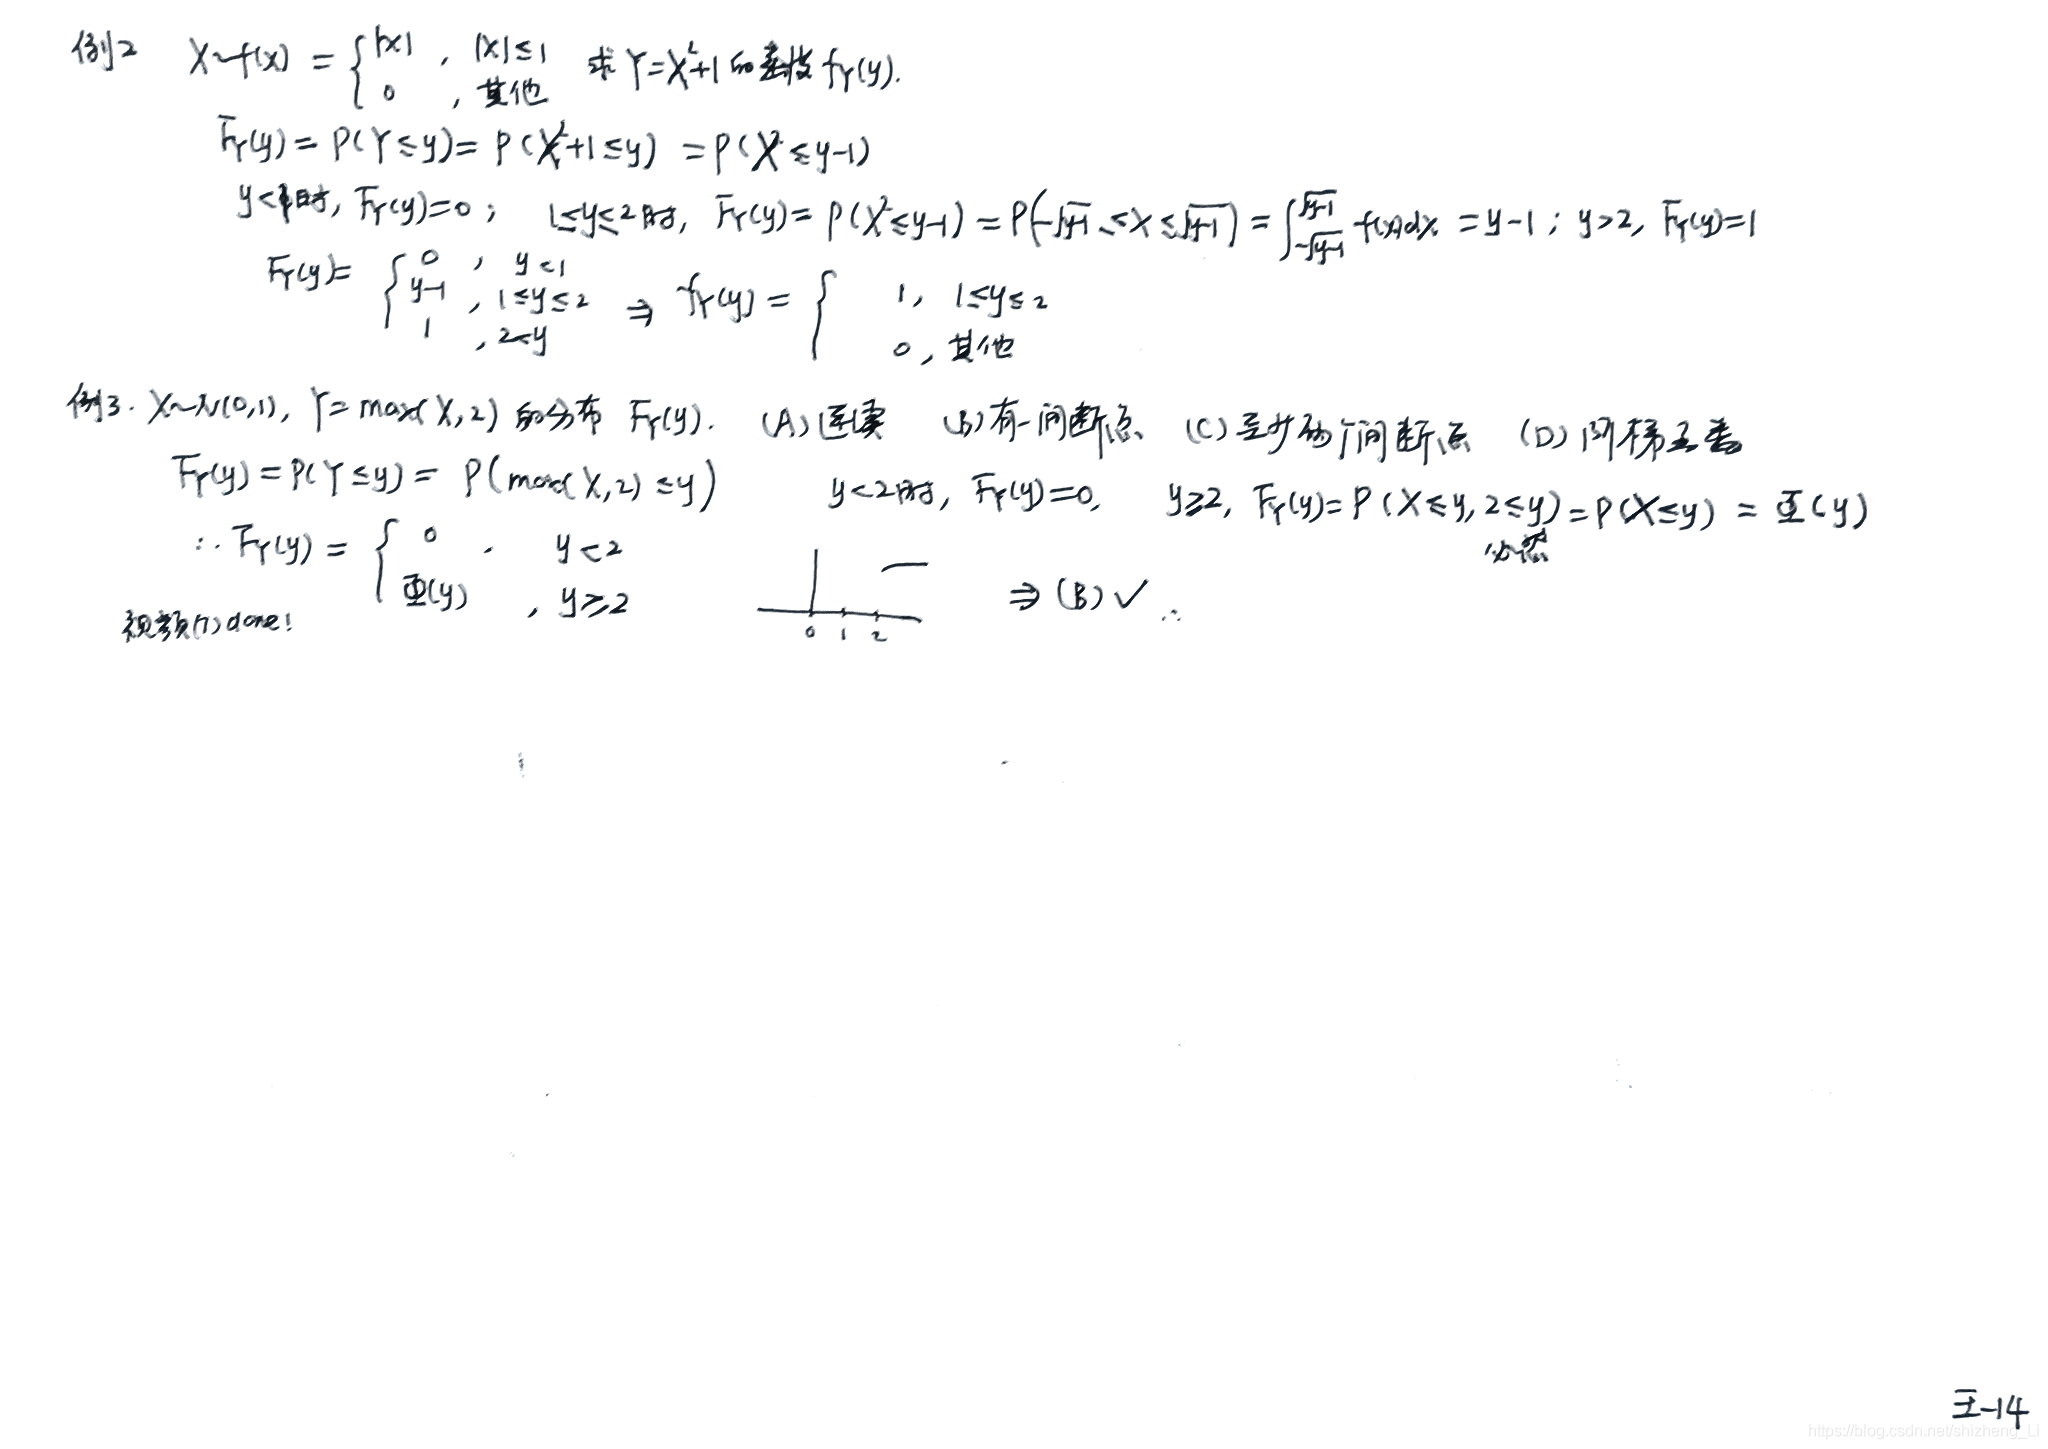 例2 X~f(x) = { |x| , |x|≤1
0 , 其他 求 Y=X²+1 的密度 f_Y(y).
F_Y(y) = P(Y≤y) = P(X²+1≤y) = P(X²≤y-1)
y<1时, F_Y(y)=0 ; 1≤y≤2时, F_Y(y) = P(X²≤y-1) = P(-√(y-1) ≤X≤√(y-1)) = ∫_{-√(y-1)}^{√(y-1)} f(x)dx = y-1 ; y>2, F_Y(y)=1
F_Y(y)= { 0 , y<1
y-1 , 1≤y≤2 ⇒ f_Y(y) = { 1, 1≤y≤2
1 , 2<y
0, 其他
例3. X~N(0,1), Y=max(X,2) 的分布 F_Y(y). (A)连续 (B)有一间断点 (C)至少两个间断点 (D)阶梯函数
F_Y(y) = P(Y≤y) = P(max(X,2)≤y) y<2时, F_Y(y)=0, y≥2, F_Y(y)=P(X≤y, 2≤y)=P(X≤y) = Φ(y)
必然
∴ F_Y(y) = { 0 , y<2
Φ(y) , y≥2 ⇒ (B) ✓ ∴
视频(7) done!
0 1 2
王-14
https://blog.csdn.net/shizheng_Li